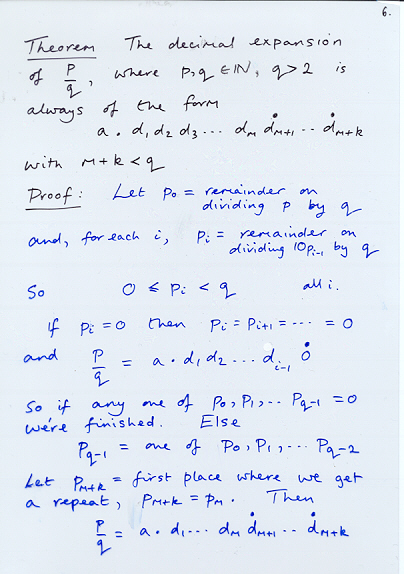 6.
Theorem The decimal expansion
of p/q, where p,q ∈ ℕ, q>2 is
always of the form
a . d₁ d₂ d₃ ... dₘ ḋₘ₊₁ .. ḋₘ₊ₖ
with m+k < q
Proof: Let p₀ = remainder on
dividing p by q
and, for each i, pᵢ = remainder on
dividing 10pᵢ₋₁ by q
So 0 ≤ pᵢ < q all i.
if pᵢ = 0 then pᵢ = pᵢ₊₁ = ... = 0
and p/q = a . d₁ d₂ ... dᵢ₋₁ 0̇
So if any one of p₀, p₁, .. p_{q-1} = 0
we're finished. Else
p_{q-1} = one of p₀, p₁, ... p_{q-2}
Let pₘ₊ₖ = first place where we get
a repeat, pₘ₊ₖ = pₘ. Then
p/q = a . d₁ ... dₘ ḋₘ₊₁ .. ḋₘ₊ₖ